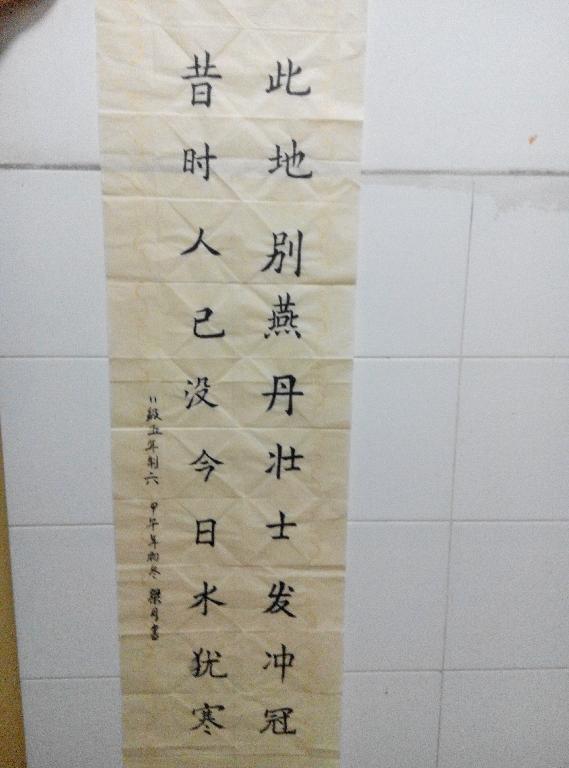 此地别燕丹壮士发冲冠
昔时人已没今日水犹寒
11级五年制六 甲午年初冬 梁月書